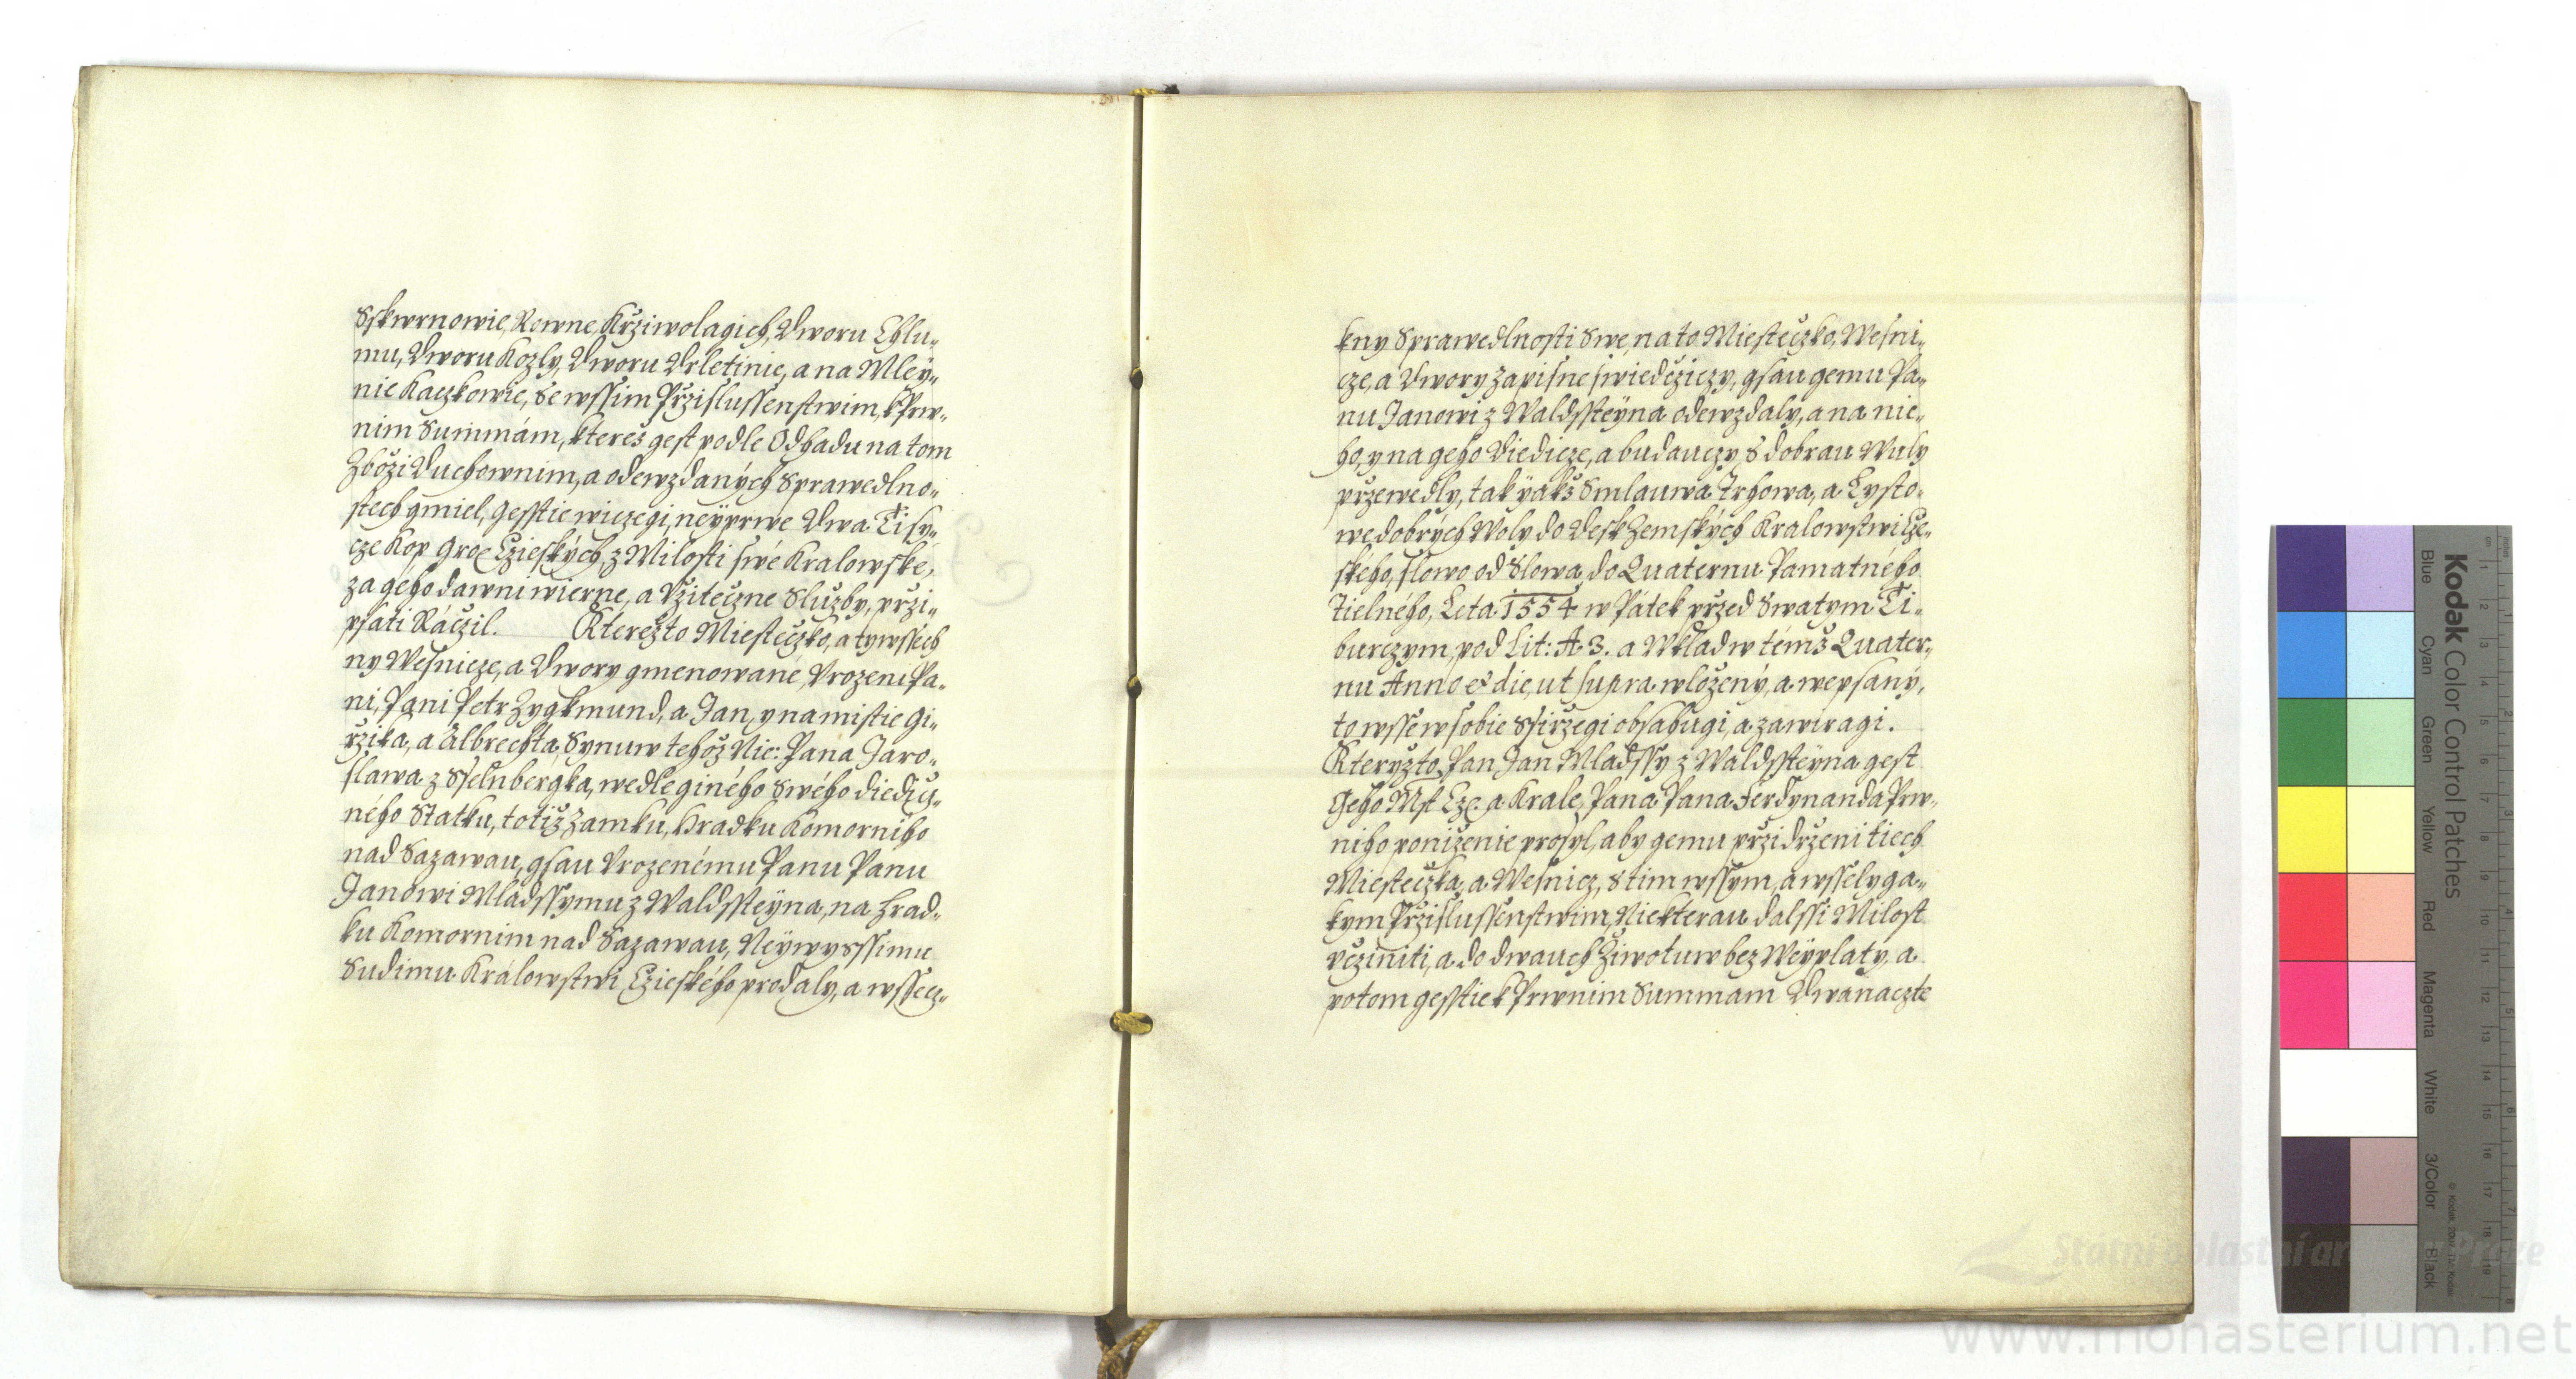 Sskwrnowie, Rowne, Krziwolagich, Dworu Chlu„
mu, Dworu Kozly, Dworu Drletinie, a na Mleÿ„
nie Kaczkowie, Se wssim Przislussenstwim, k Prw„
nim Summám, kterež gest podle Odhadu na tom
Zboži Duchownim, a odewzdaných Sprawedlno„
stech gmiel, gesstie wiczegi, neÿprwe Dwa Tisy„
cze Kop Groc Czieských, z Milosti swé Kralowské,
za gého dawni wierne, a Vžiteczne Služby, przi„
psati Ráczil. Kterežto Miesteczko, a ty wssech
ny Wesnicze, a Dwory gmenowané, Vrozeni Pa„
ni, Pani Petr Zygkmund, a Jan, y na mistie Gi„
rzika, a Albrechta, Synuw tehož Nie: Pana Jaro„
slawa z Sselnbergka, wedle giného Swého diedicz„
ného Statku, totiž Zamku, Hradku Komorniho
nad Sazawau, gsau Vrozenému Panu Panu
Janowi Mladssymu z Waldssteÿna, na Hrad„
ku Komornim nad Sazawau, Neÿwyssimu
Sudimu Králowstwi Czieského prodaly, a wssecz„
kny Sprawedlnosti Swe, na to Miesteczko, Wesni„
cze, a Dwory Zapisne swiedcziczy, gsau gemu Pa„
nu Janowi z Waldssteÿna odewzdaly, a na nie„
ho, y na geho Diedicze, a budauczy, S dobrau Wuly
przewedly, tak yakž Smlauwa Trhowa, a Lysto„
we dobrych Woly do Desk Zemských Kralowstwi Cze„
ského, slowo od Slowa, do Quaternu Pamatného
Tielného, Leta 1554 w Pátek przed Swatym Ti„
burczym, pod Lit: A. 3. a Wklad w témž Quater„
nu Anno et die, ut supra wložený, a wepsaný,
to wsse w sobie Ssirzegi obsahugi, a zawiragi.
Kteryžto Pan Jan Mladssy z Waldssteyna gest
Geho Mst Cze. a Krale, Pana Pana Ferdynanda Prw„
niho poniženie prosyl, aby gemu przi drženi tiech
Miesteczka, a Wesnicz, S tim wssym, a wsselyga„
kym Przislussenstwim, Niekterau dalssi Milost
vcziniti, a do dwauch Žiwotuw bez Weÿplaty, a
potom gesstie k Prwnim Summam Dwanaczte
Kodak Color Control Patches
Blue
Cyan
Green
Yellow
Red
Magenta
White
3/Color
Black
www.monasterium.net